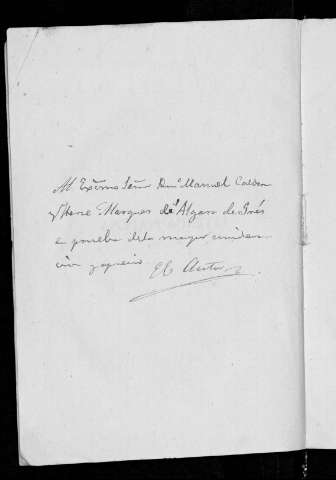 Al Exćmo Señor Don Manuel Calder
y Marqués de Algara de Grés
en prueba de la mayor consideración
y aprecio
El Autor